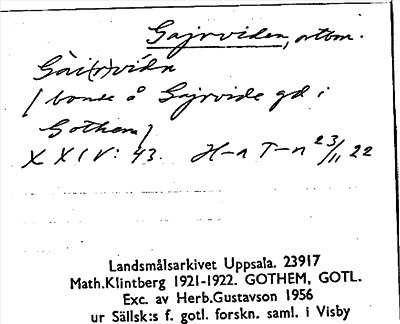 Gajrviden, ortbon.
Gài(r)vídn
[bonde å Gajrvide gd i
Gothem]
XXIV: 43. H-n T-n 23/11 22
Landsmålsarkivet Uppsala. 23917
Math.Klintberg 1921-1922. GOTHEM, GOTL.
Exc. av Herb.Gustavson 1956
ur Sällsk:s f. gotl. forskn. saml. i Visby